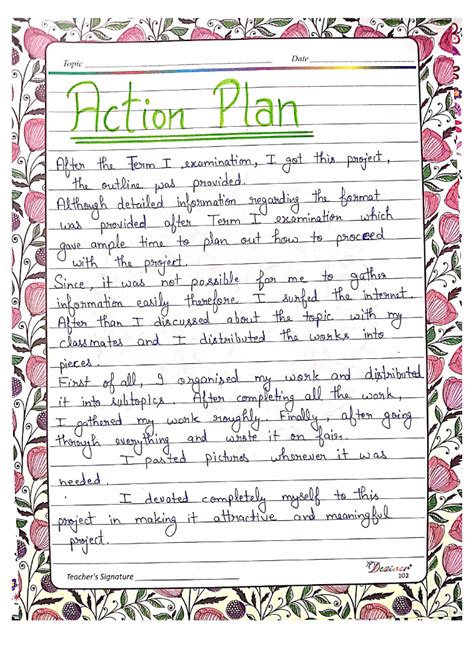 Topic Date
Action Plan
After the Term I examination, I got this project,
the outline was provided.
Although detailed information regarding the format
was provided after Term I examination which
gave ample time to plan out how to proceed
with the project.
Since, it was not possible for me to gather
information easily therefore I surfed the internet.
After than I discussed about the topic with my
classmates and I distributed the works into
pieces.
First of all, I organised my work and distributed
it into subtopics. After completing all the work,
I gathered my work roughly. Finally, after going
through everything and wrote it on fair.
I pasted pictures wherever it was
needed.
I devoted completely myself to this
project in making it attractive and meaningful
project.
Teacher's Signature
102